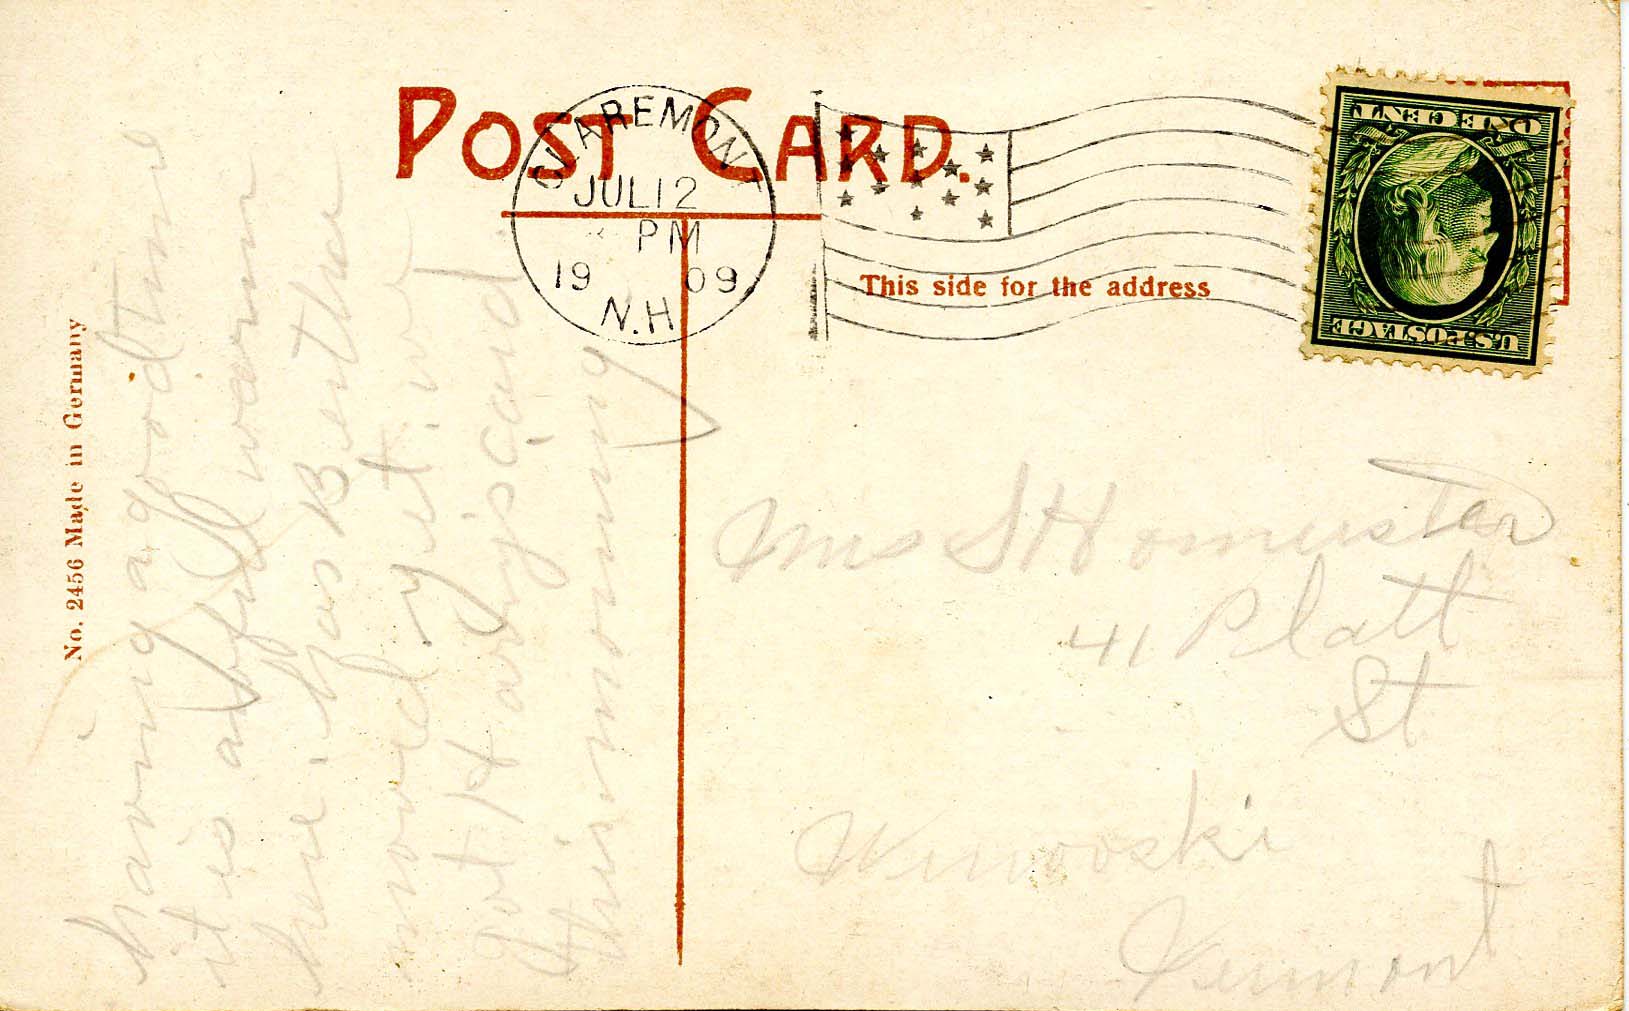 POST CARD.
CLAREMONT
JUL 12
PM
19 09
N.H.
This side for the address
ONE CENT
U.S. POSTAGE
No. 2456 Made in Germany
having a good time
it is awfull warm
here, has Bertha
moved yet. in
Got Harry's card
this morning
Mrs S Homerster
41 Platt
St
Winooski
Vermont